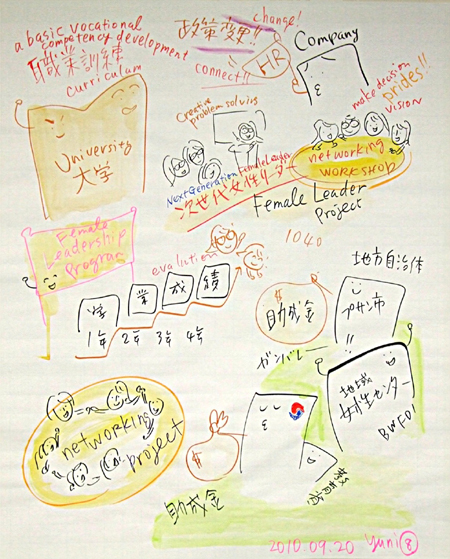 a basic vocational
competency development
職業訓練
curriculam
政策変更!!
change!
connect!!
HR
Company
University
大学
Creative
problem solving
make decision
prides!!
vision
networking
WORKSHOP
Next Generation Female Leader
次世代女性リーダー
Female Leader
Project
Female
Leadership
Program
evalution
学業成績
1年 2年 3年 4年
1040
地方自治体
助成金
プサン市
ガンバレー!!
地域
女性センター
BWFD!
networking
project
$
助成金
2010.09.20 yuni 8